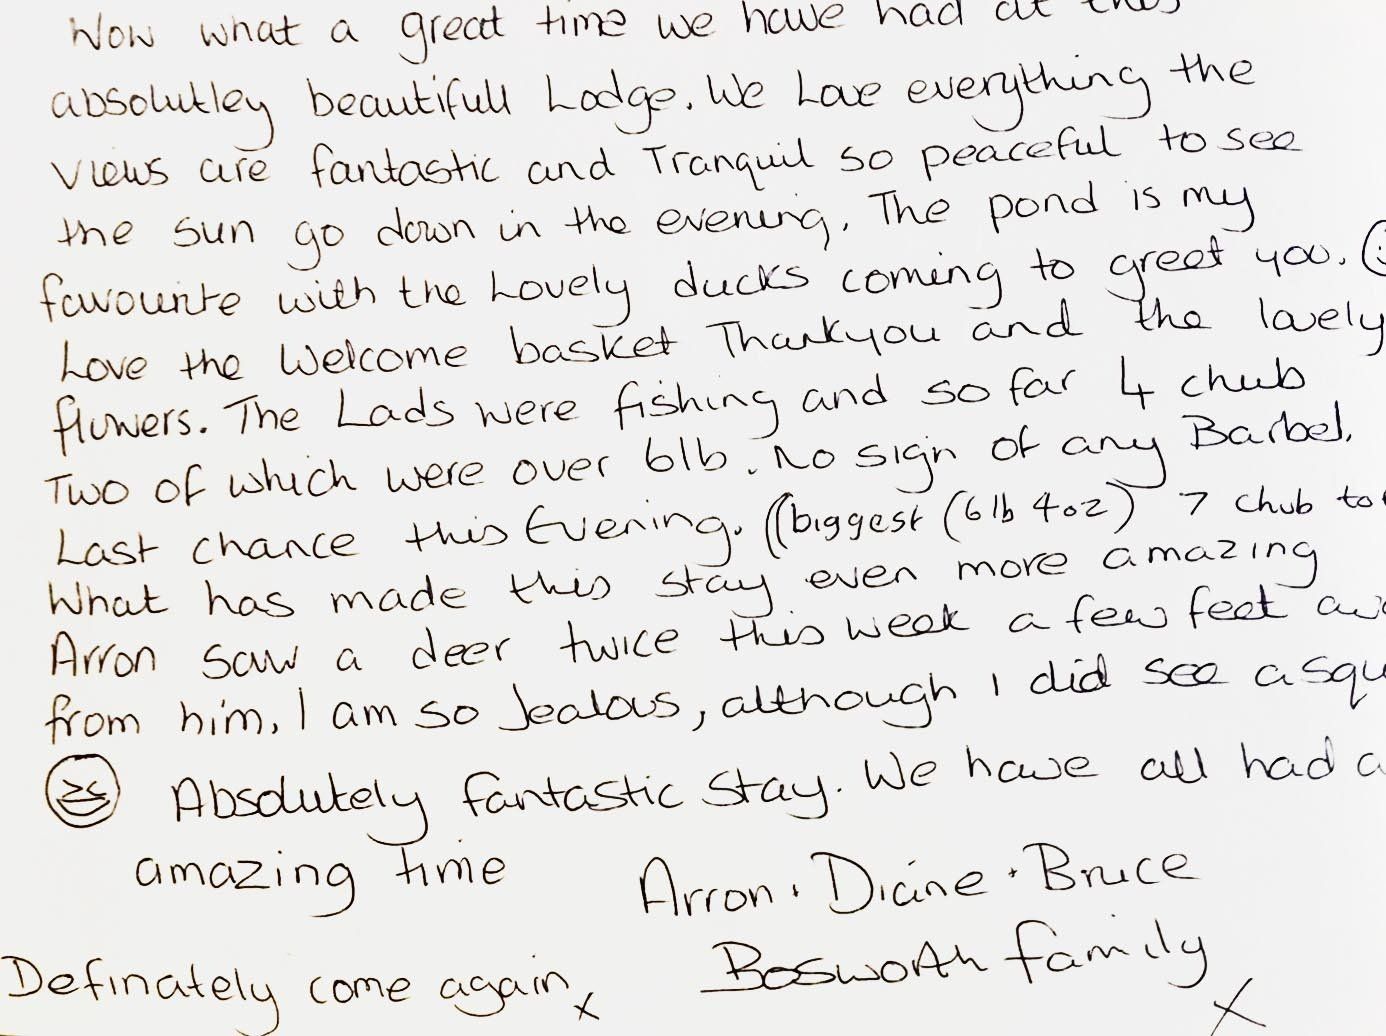 Wow what a great time we have had at this
absolutley beautifull Lodge. We Love everything the
views are fantastic and Tranquil so peaceful to see
the sun go down in the evening. The pond is my
favourite with the Lovely ducks coming to greet you.
Love the Welcome basket Thankyou and the lovely
flowers. The Lads were fishing and so far 4 chub
Two of which were over 6lb. No sign of any Barbel.
Last chance this Evening. ((biggest (6lb 4oz) 7 chub to
What has made this stay even more amazing
Arron saw a deer twice this week a few feet aw
from him, I am so Jealous, although I did see a squ
Absolutely fantastic stay. We have all had a
amazing time
Arron · Diane · Bruce
Bosworth family
x
Definately come again x